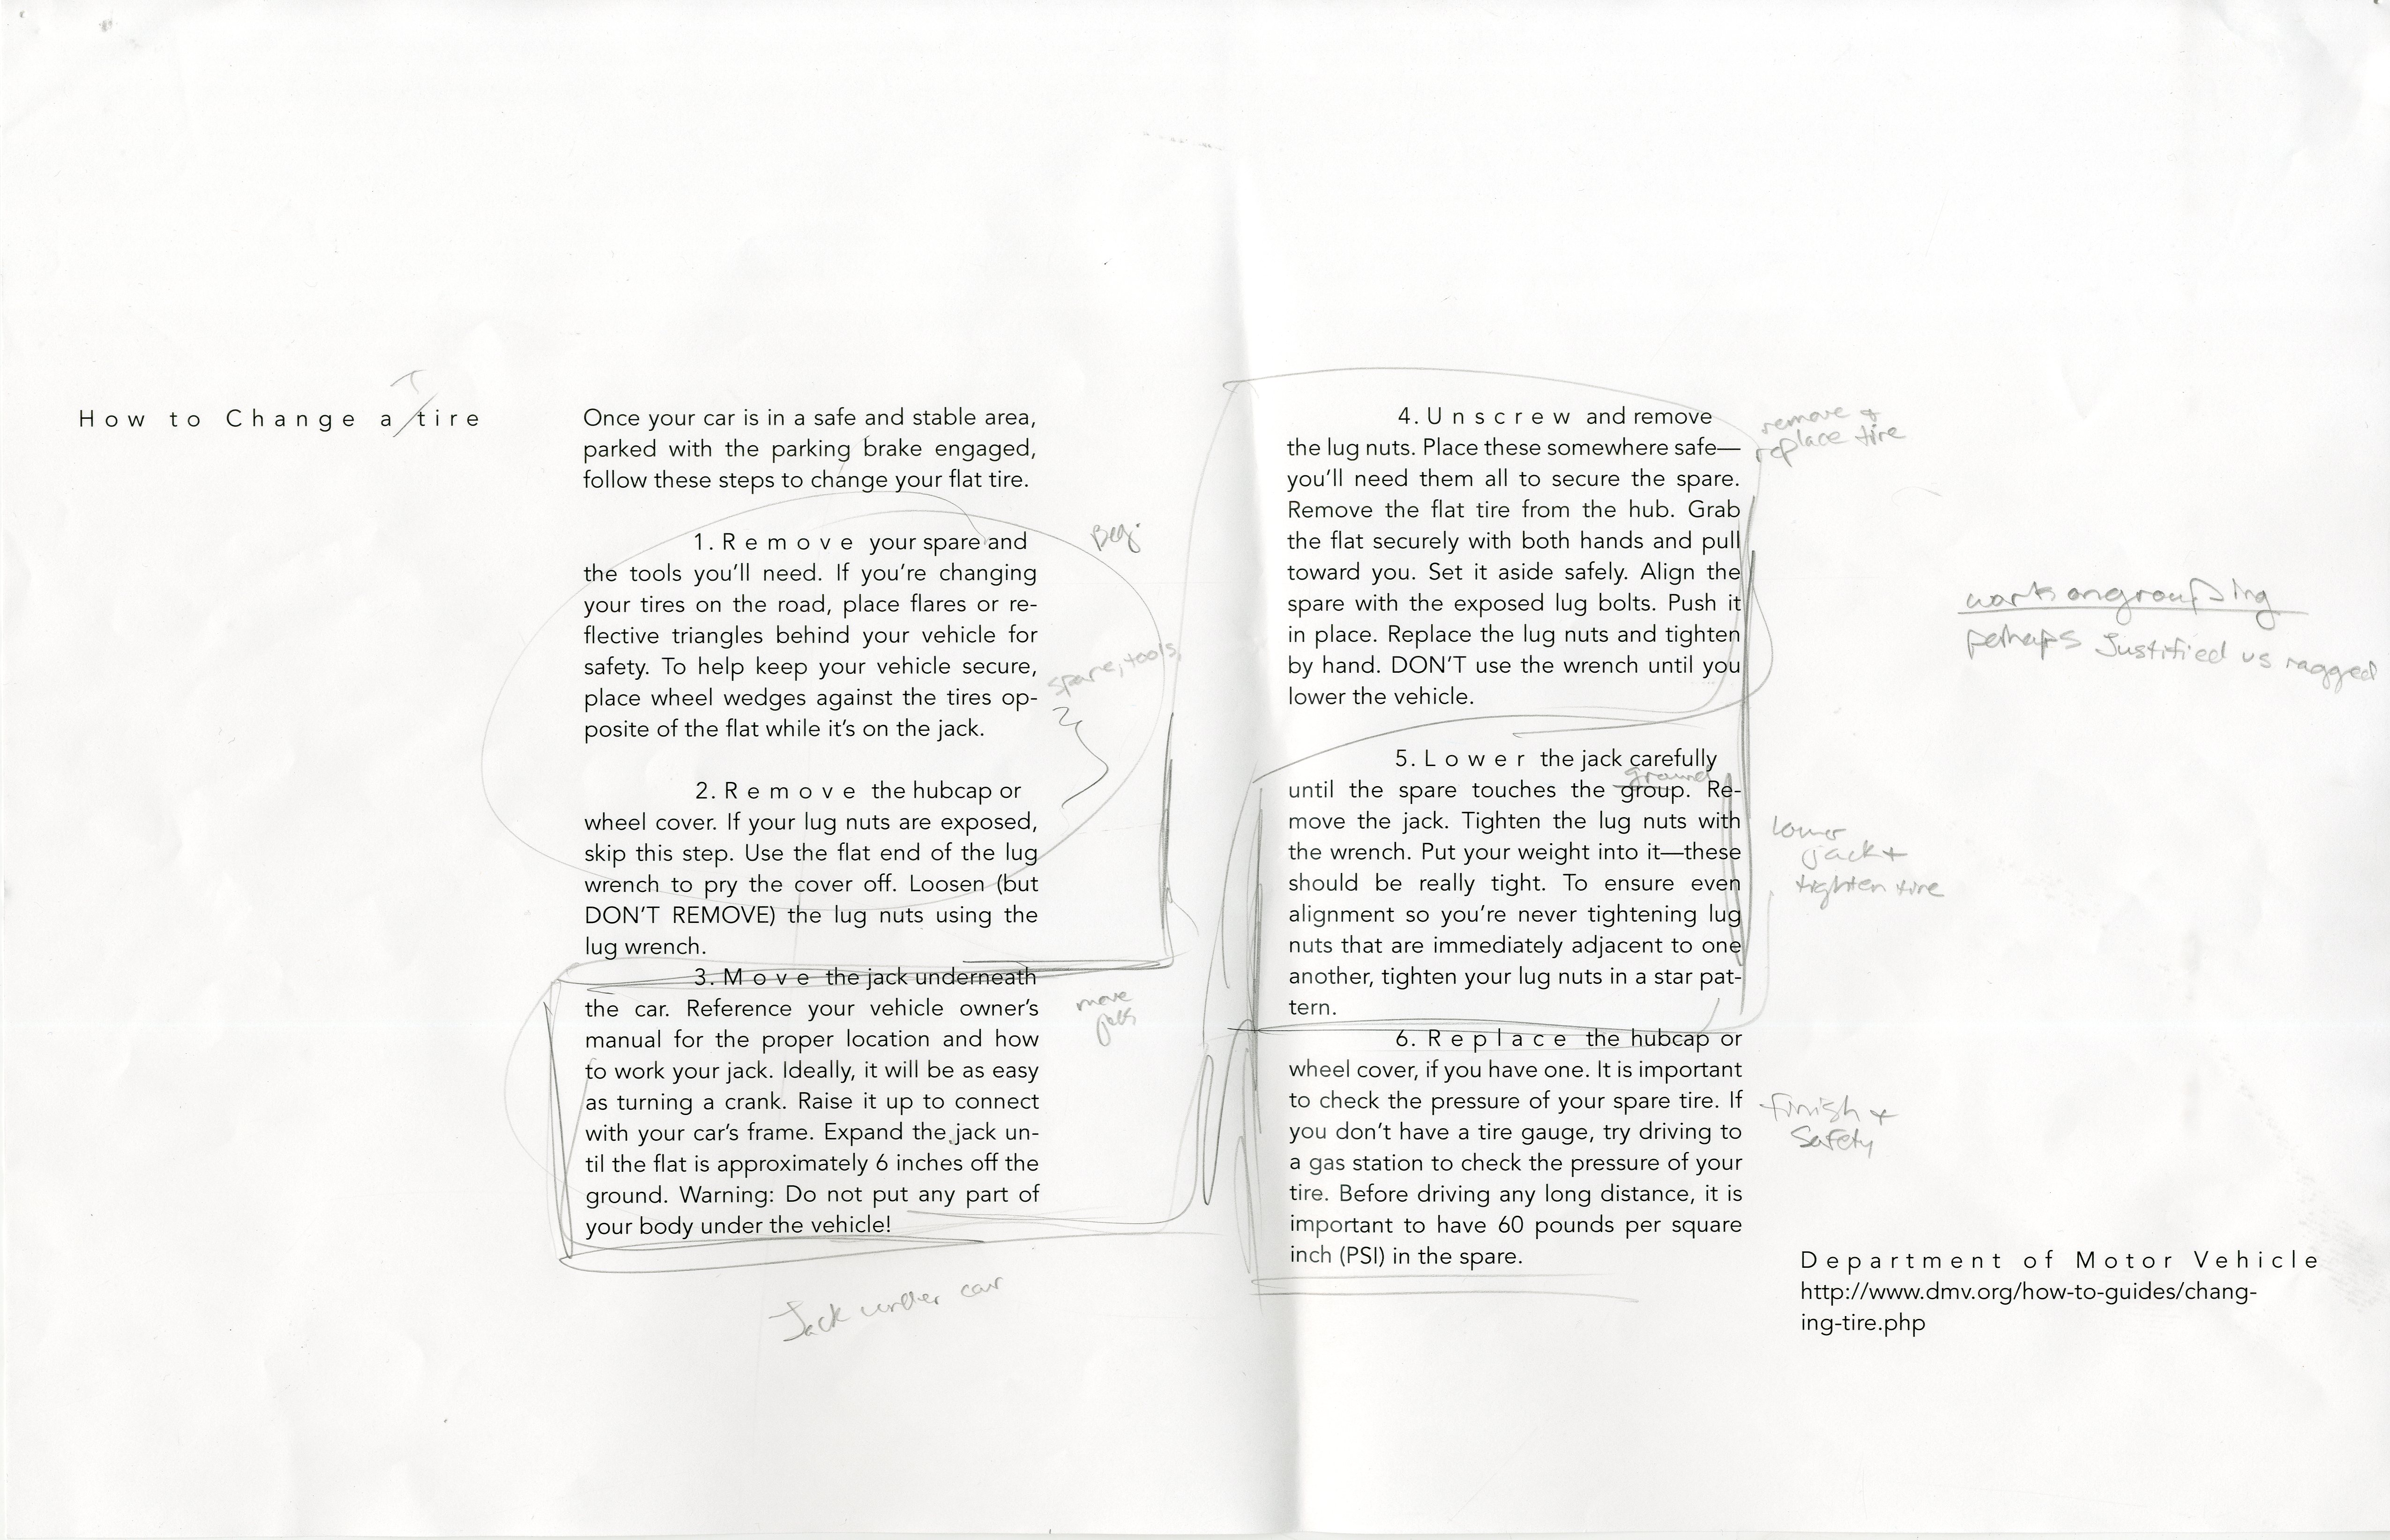 How to Change a tire
T
Once your car is in a safe and stable area,
parked with the parking brake engaged,
follow these steps to change your flat tire.
1. Remove your spare and
the tools you'll need. If you're changing
your tires on the road, place flares or re-
flective triangles behind your vehicle for
safety. To help keep your vehicle secure,
place wheel wedges against the tires op-
posite of the flat while it's on the jack.
Beg.
spare, tools,
2. Remove the hubcap or
wheel cover. If your lug nuts are exposed,
skip this step. Use the flat end of the lug
wrench to pry the cover off. Loosen (but
DON'T REMOVE) the lug nuts using the
lug wrench.
3. Move the jack underneath
the car. Reference your vehicle owner's
manual for the proper location and how
to work your jack. Ideally, it will be as easy
as turning a crank. Raise it up to connect
with your car's frame. Expand the jack un-
til the flat is approximately 6 inches off the
ground. Warning: Do not put any part of
your body under the vehicle!
move
jack
Jack under car
4. Unscrew and remove
the lug nuts. Place these somewhere safe—
you'll need them all to secure the spare.
Remove the flat tire from the hub. Grab
the flat securely with both hands and pull
toward you. Set it aside safely. Align the
spare with the exposed lug bolts. Push it
in place. Replace the lug nuts and tighten
by hand. DON'T use the wrench until you
lower the vehicle.
remove +
replace tire
5. Lower the jack carefully
ground
until the spare touches the group. Re-
move the jack. Tighten the lug nuts with
the wrench. Put your weight into it—these
should be really tight. To ensure even
alignment so you're never tightening lug
nuts that are immediately adjacent to one
another, tighten your lug nuts in a star pat-
tern.
lower
jack +
tighten tire
6. Replace the hubcap or
wheel cover, if you have one. It is important
to check the pressure of your spare tire. If
you don't have a tire gauge, try driving to
a gas station to check the pressure of your
tire. Before driving any long distance, it is
important to have 60 pounds per square
inch (PSI) in the spare.
finish +
Safety
work on grouping
perhaps Justified vs ragged
Department of Motor Vehicle
http://www.dmv.org/how-to-guides/chang-
ing-tire.php